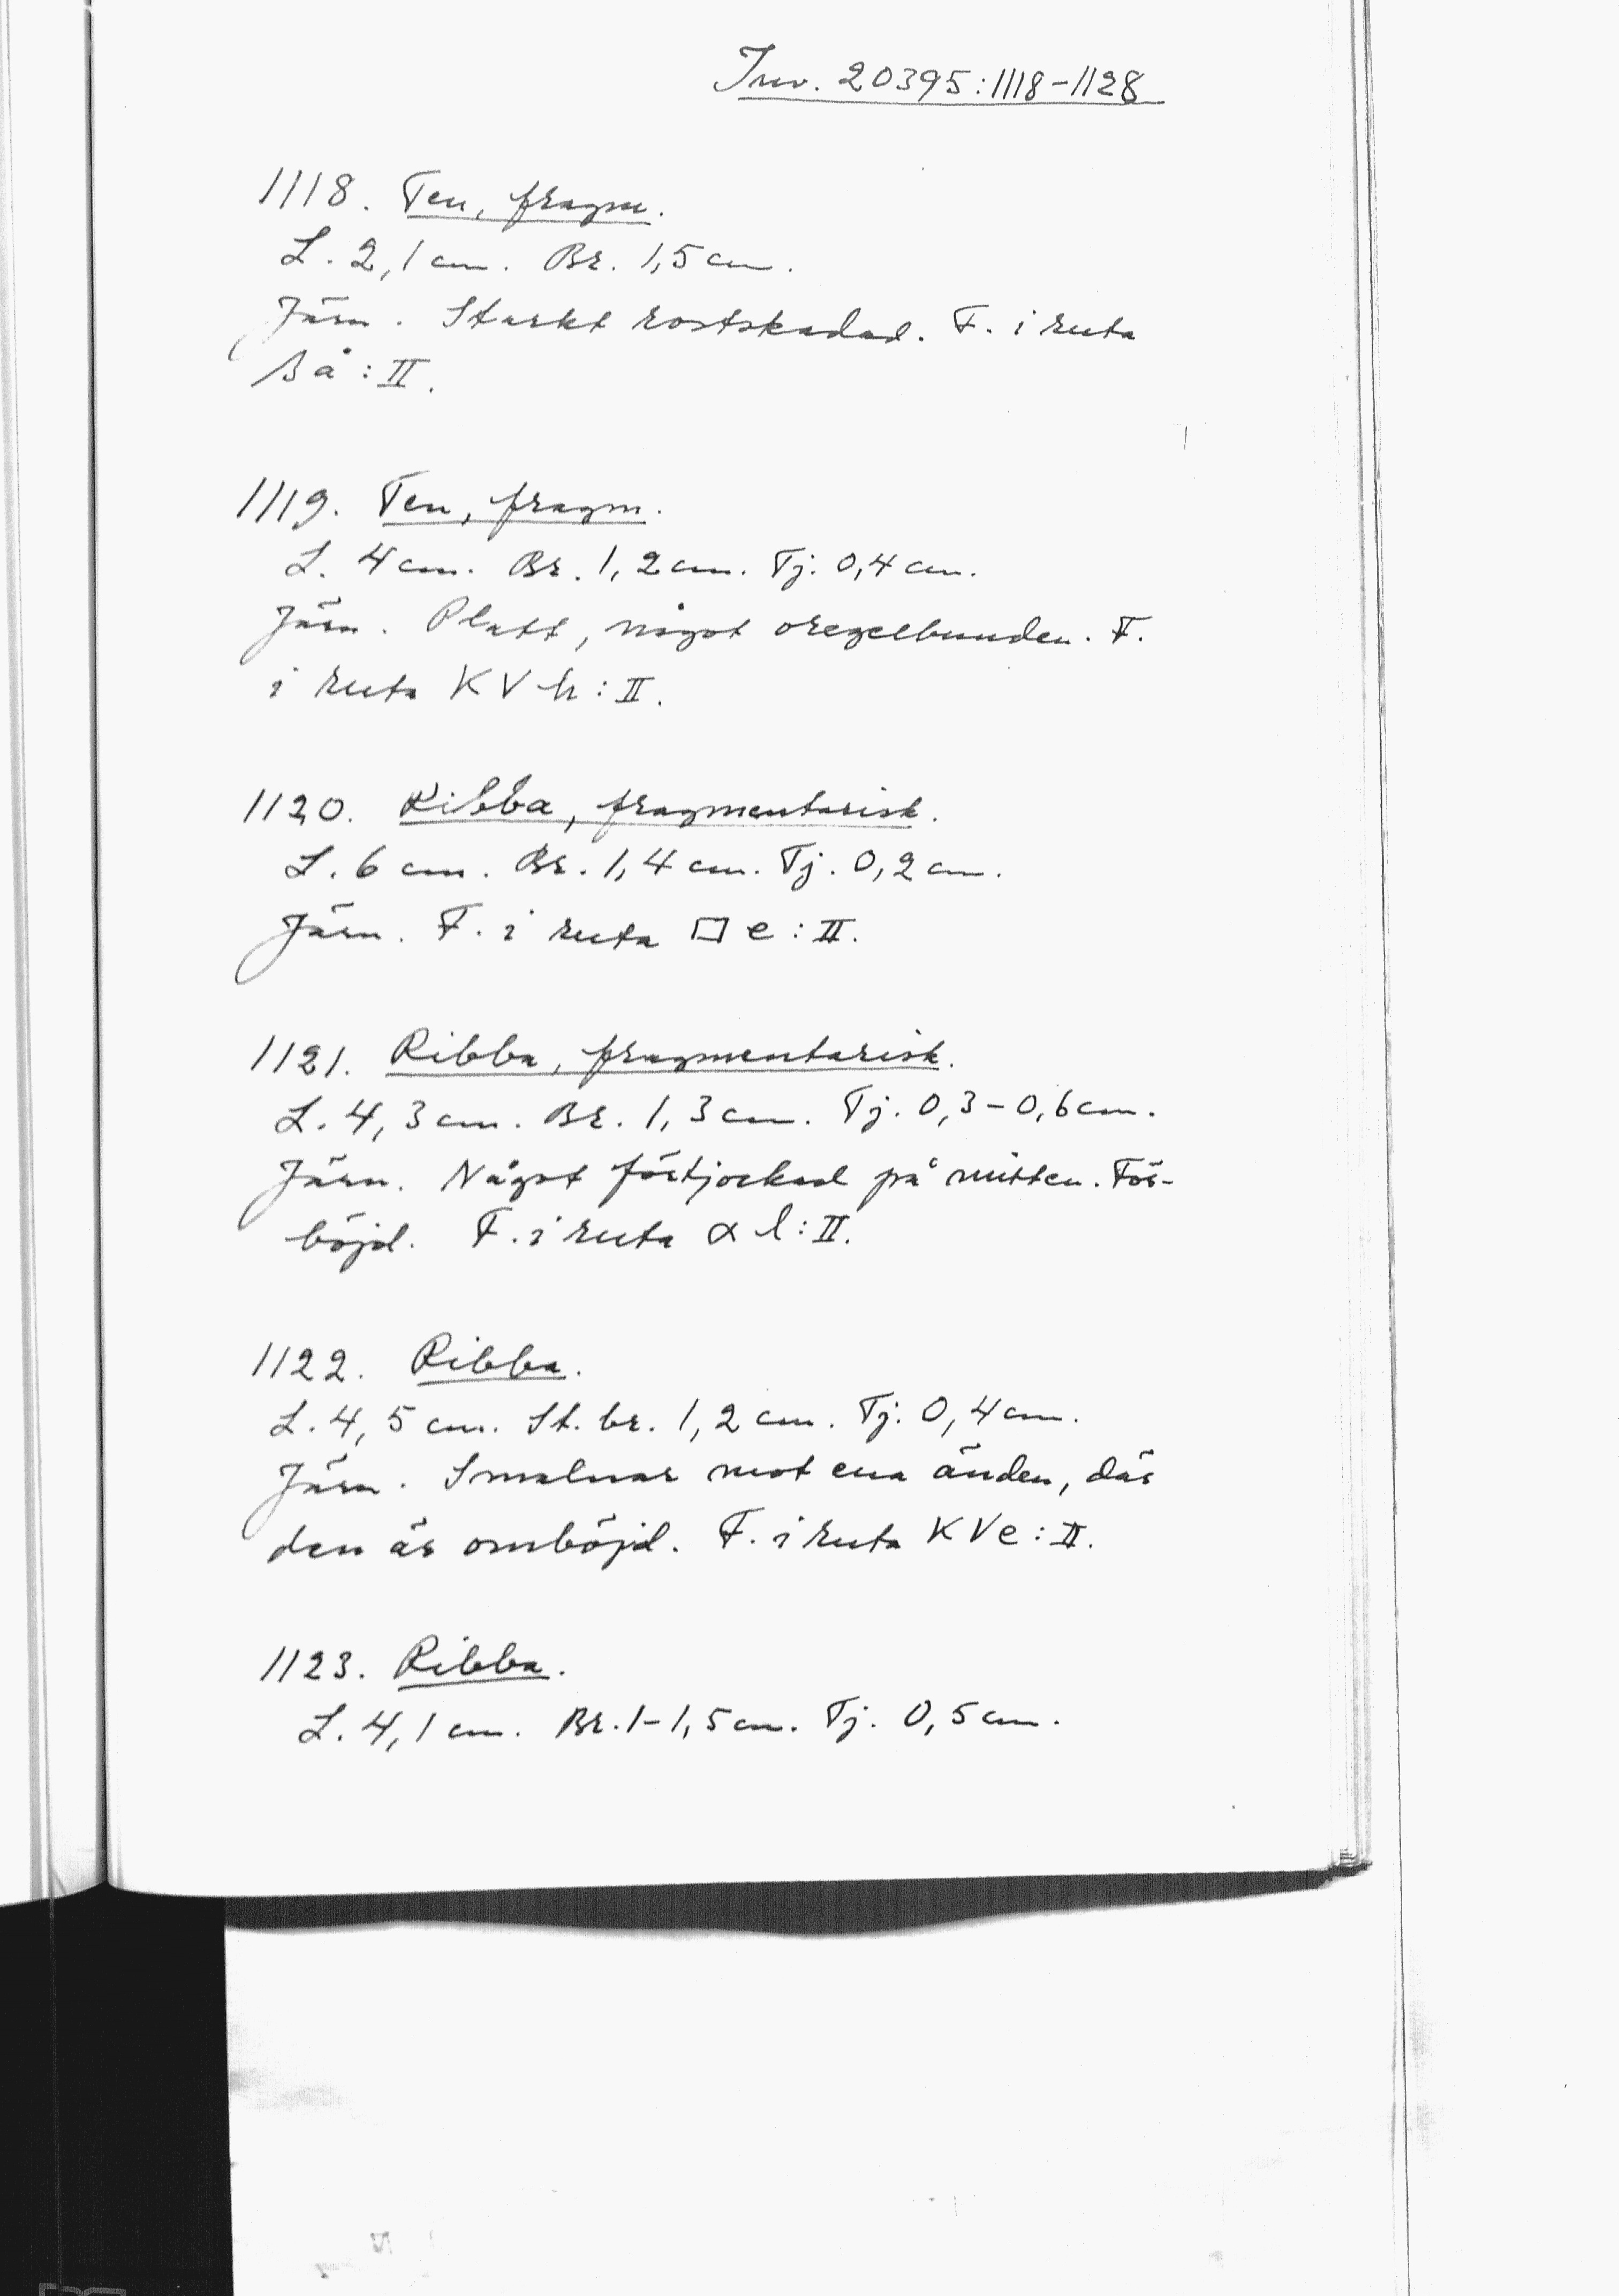 Inv. 20395:1118-1128
1118. Ten, fragm.
L. 2,1 cm. Br. 1,5 cm.
Järn. Starkt rostskadad. F. i ruta
ß å : II.
1119. Ten, fragm.
L. 4 cm. Br. 1,2 cm. Tj. 0,4 cm.
Järn. Platt, något oregelbunden. F.
i ruta KV h : II.
1120. Ribba, fragmentarisk.
L. 6 cm. Br. 1,4 cm. Tj. 0,2 cm.
Järn. F. i ruta □ e : II.
1121. Ribba, fragmentarisk.
L. 4,3 cm. Br. 1,3 cm. Tj. 0,3-0,6 cm.
Järn. Något förtjockad på mitten. För-
böjd. F. i ruta α l : II.
1122. Ribba.
L. 4,5 cm. St. br. 1,2 cm. Tj. 0,4 cm.
Järn. Smalnar mot ena änden, där
den är omböjd. F. i ruta KV e : II.
1123. Ribba.
L. 4,1 cm. Br. 1-1,5 cm. Tj. 0,5 cm.